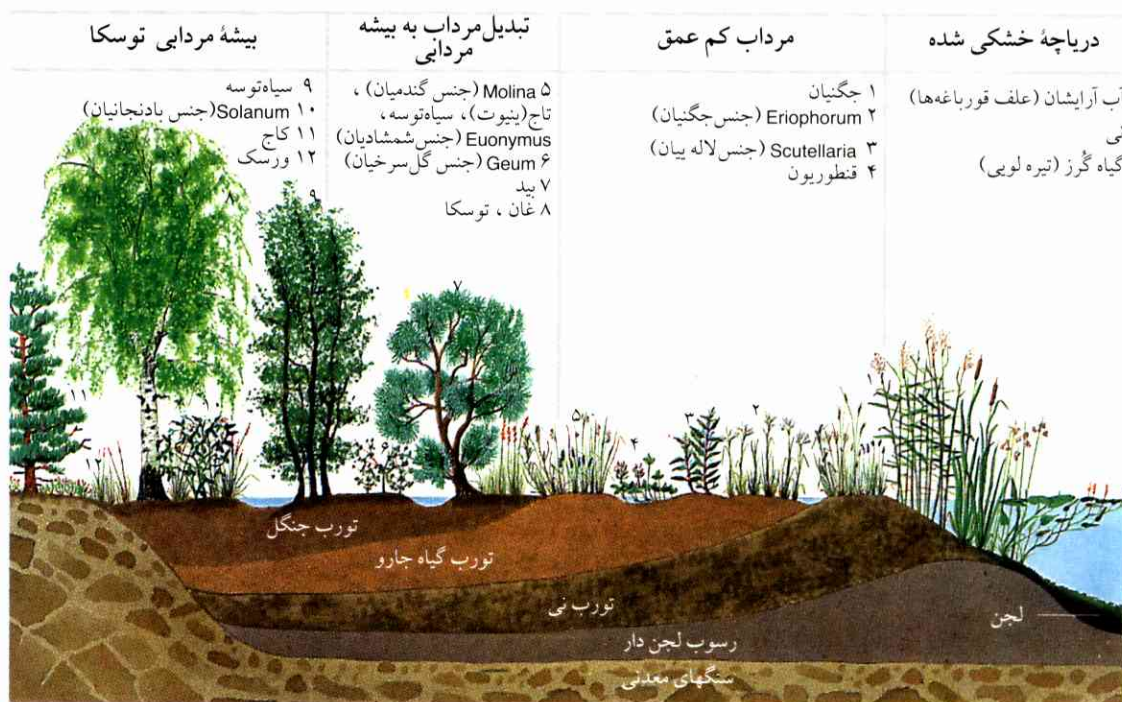 دریاچهٔ خشکی شده
آب آرایشان (علف قورباغه‌ها)
نی
گیاه گُرز (تیره لویی)
مرداب کم عمق
۱ جگنیان
۲ Eriophorum (جنس جگنیان)
۳ Scutellaria (جنس لاله پیان)
۴ قنطوریون
تبدیل مرداب به بیشه
مردابی
۵ Molina (جنس گندمیان) ،
تاج(ینبوت)، سیاه‌توسه،
Euonymus (جنس شمشادیان)
۶ Geum (جنس گل سرخیان)
۷ بید
۸ غان ، توسکا
بیشهٔ مردابی توسکا
۹ سیاه‌توسه
۱۰ Solanum(جنس بادنجانیان)
۱۱ کاج
۱۲ ورسک
۸
۹
۷
۱۱
۶
۵
۴
۳
۲
۱
تورب جنگل
تورب گیاه جارو
تورب نی
رسوب لجن دار
سنگهای معدنی
لجن